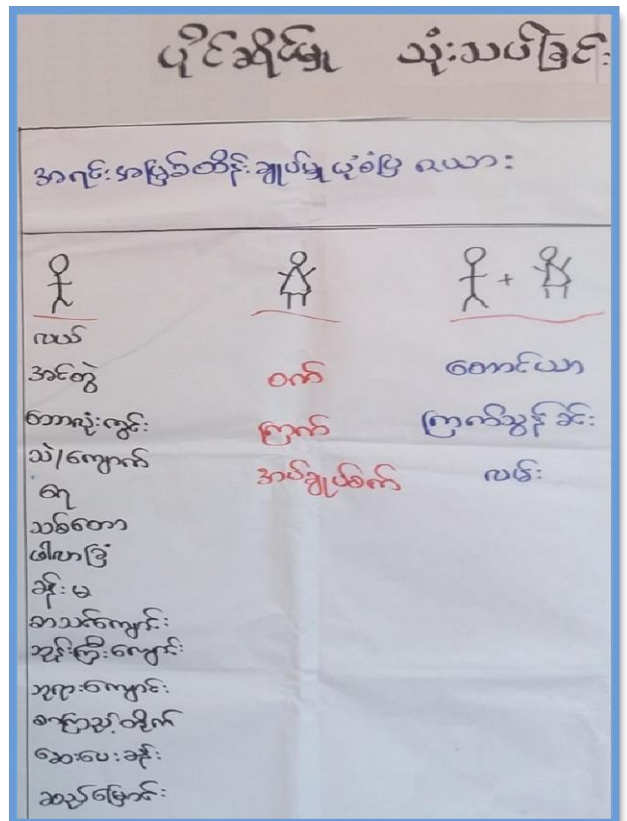 ပိုင်ဆိုင်မှု သုံးသပ်ခြင်း
အရင်းအမြစ်ထိန်းချုပ်မှုပုံစံပြ ဇယား
လယ်
အင်တွဲ ဝက် တောင်ယာ
ဘောလုံးကွင်း ကြက် ကြက်သွန်ခင်း
သဲ/ကျောက် အပ်ချုပ်စက် လမ်း
ရေ
သစ်တော
ဖါလာခြံ
ခန်းမ
စာသင်ကျောင်း
ဘုန်းကြီးကျောင်း
ဘုရားကျောင်း
စာကြည့်တိုက်
ဆေးပေးခန်း
ဆည်မြောင်း